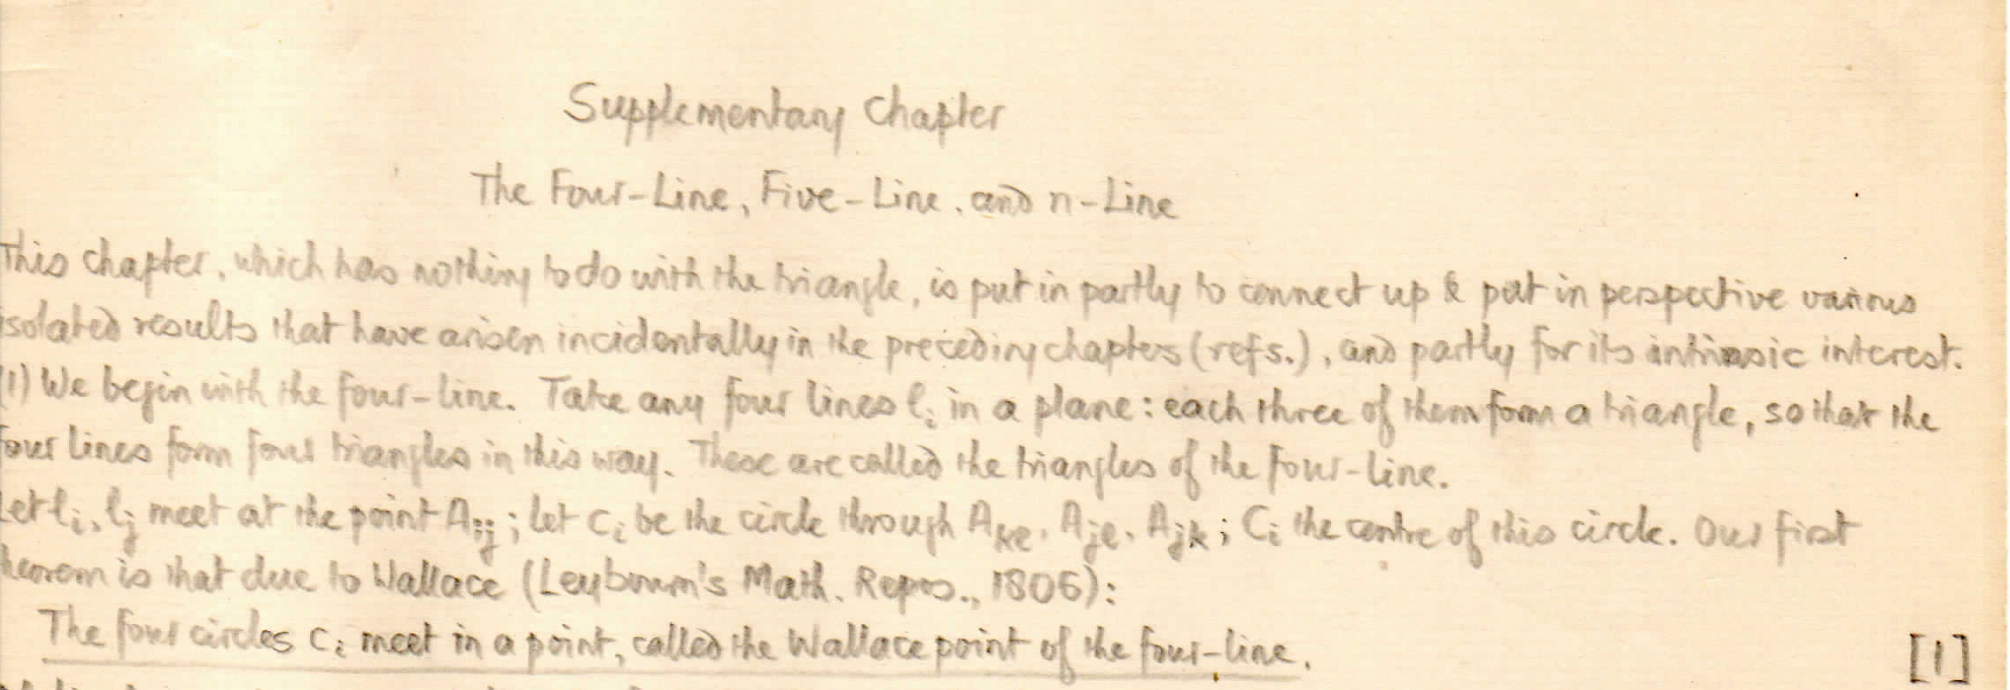 Supplementary Chapter
The Four-Line, Five-Line, and n-Line
This chapter, which has nothing to do with the triangle, is put in partly to connect up & put in perspective various
isolated results that have arisen incidentally in the preceding chapters (refs.), and partly for its intrinsic interest.
(1) We begin with the four-line. Take any four lines lᵢ in a plane: each three of them form a triangle, so that the
four lines form four triangles in this way. These are called the triangles of the four-line.
Let lᵢ, lⱼ meet at the point Aᵢⱼ; let cᵢ be the circle through Aₖₗ, Aⱼₗ, Aⱼₖ; Cᵢ the centre of this circle. Our first
theorem is that due to Wallace (Leybourn's Math. Repos., 1806):
The four circles cᵢ meet in a point, called the Wallace point of the four-line. [1]